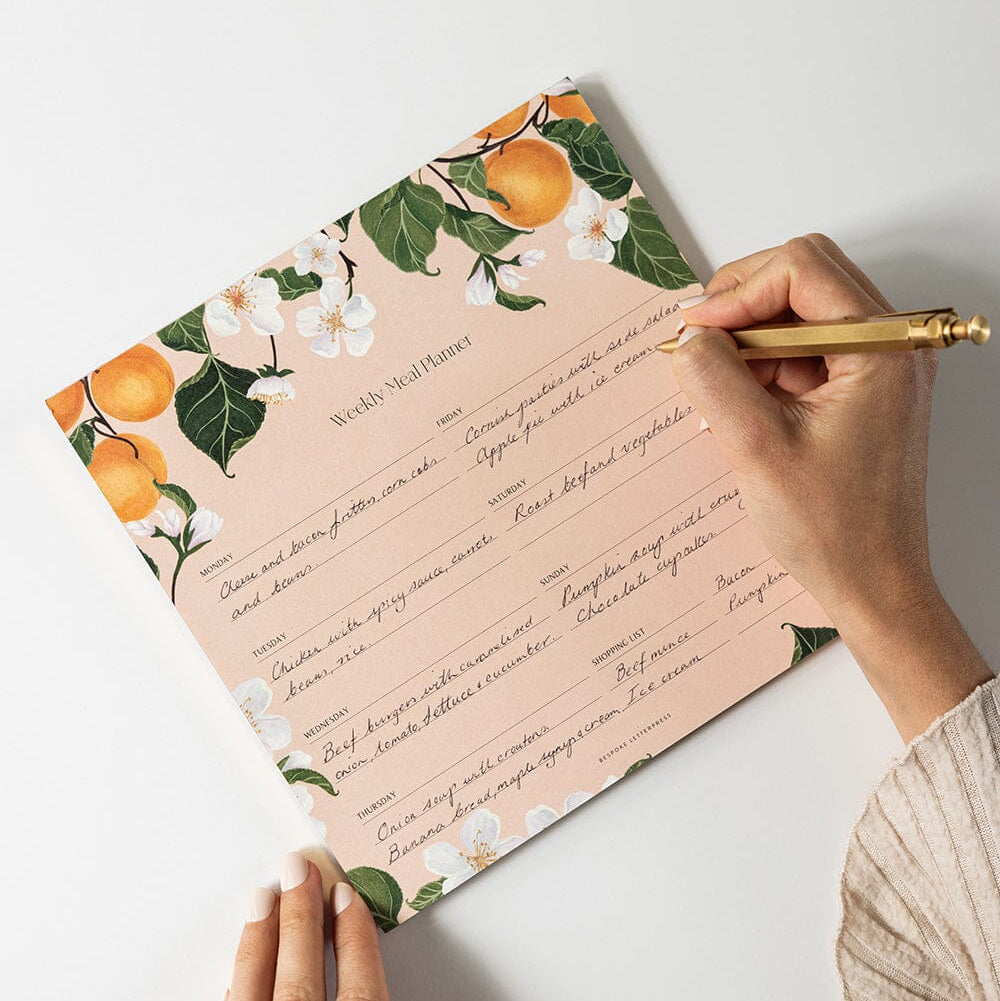 Weekly Meal Planner
MONDAY
Cheese and bacon fritters, corn cobs
and beans.
TUESDAY
Chicken with spicy sauce, carrots
beans, rice.
WEDNESDAY
Beef burgers with caramelised
onion, tomato, lettuce & cucumber.
THURSDAY
Onion soup with croutons.
Banana bread, maple syrup & cream
FRIDAY
Cornish pasties with side salad
Apple pie with ice cream
SATURDAY
Roast beef and vegetables
SUNDAY
Pumpkin soup with
Chocolate cupcakes
SHOPPING LIST
Beef mince
Bacon
Ice cream
Pumpkin
BESPOKE LETTERPRESS